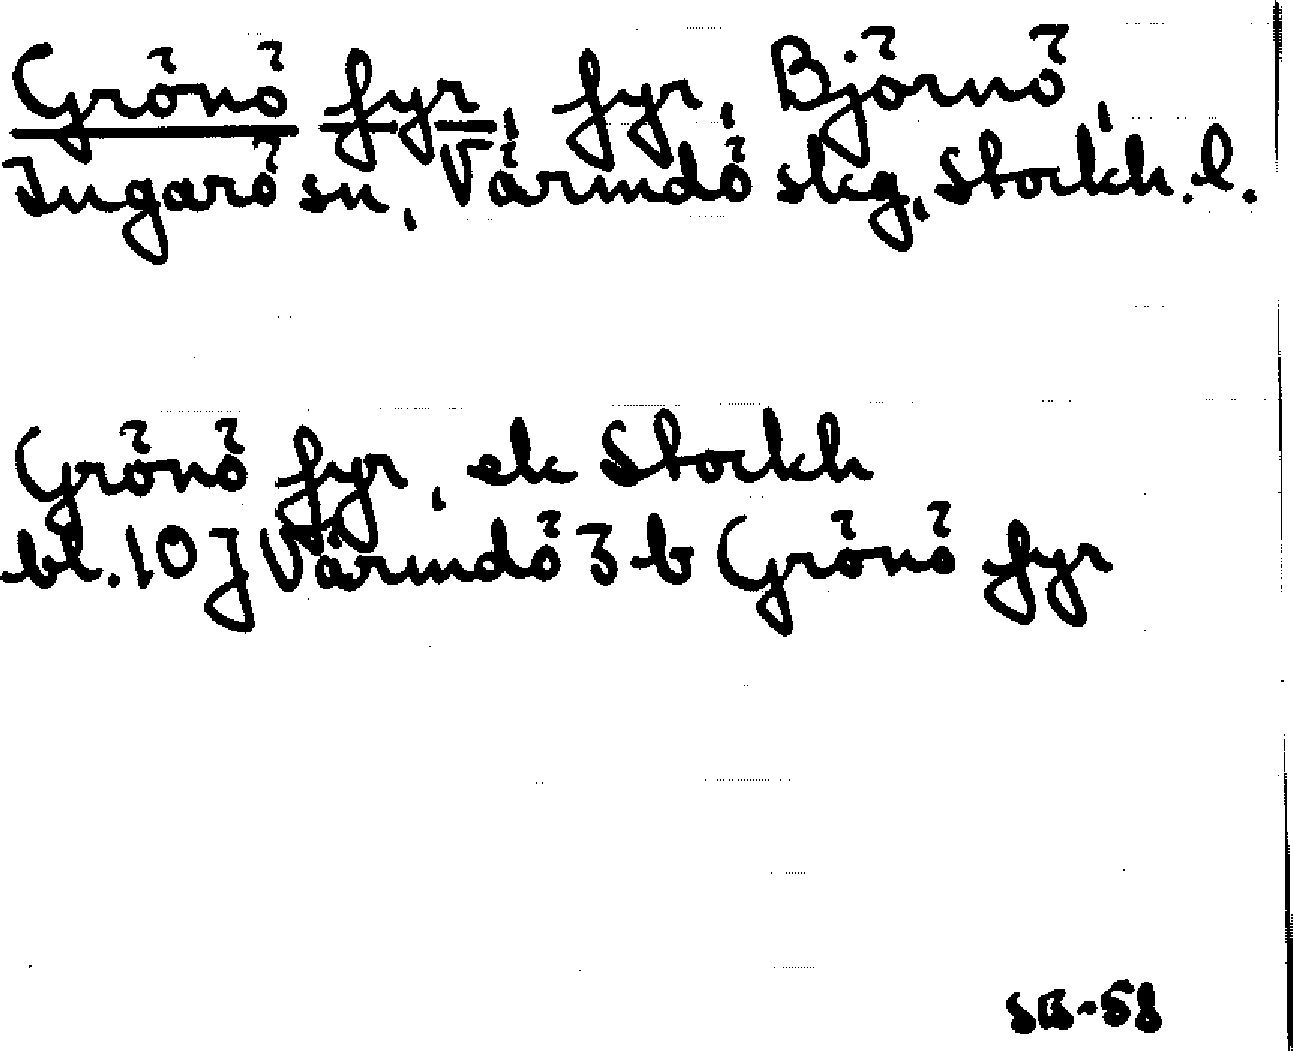 Grönö fyr, fyr, Björnö,
Ingarö sn, Värmdö skg, Stockh. l.
Grönö fyr, ek Stockh
bl. 10 J Värmdö 3 b Grönö fyr
SB-58